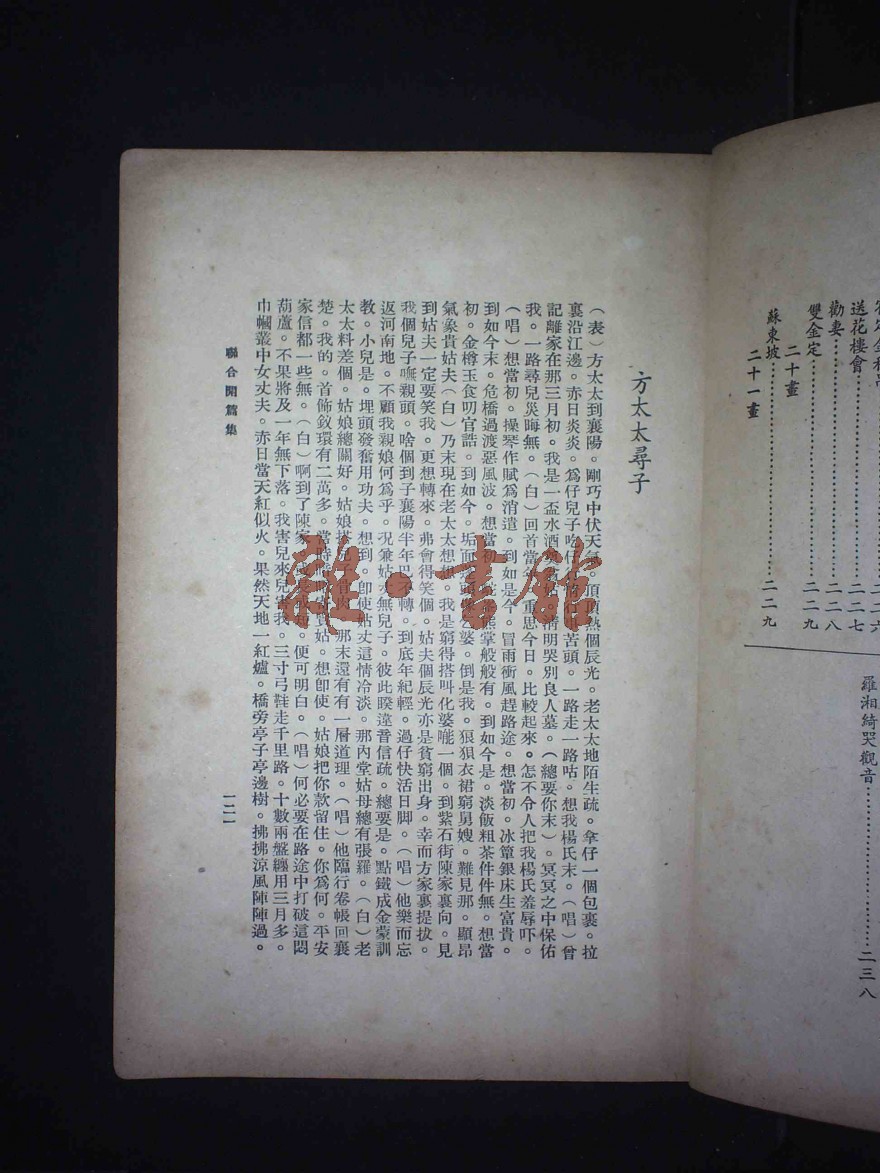 送花樓會……二二七
勸妻……二二八
雙金定……二二九
二十畫
蘇東坡……二二九
二十一畫
羅湘綺哭觀音……二三八
方太太尋子
(表)方太太到襄陽。剛巧中伏天氣。頂頂熱個辰光。老太太地陌生疏。拿仔一個包裹。拉
裏沿江邊。赤日炎炎。爲仔兒子吃仔苦頭。一路走一路咕。想我楊氏末。(唱)曾
記離家在那三月初。我是一盃水酒清明哭別良人墓。(總要你末)冥冥之中保佑
我。一路尋兒災晦無。(白)回首當年。重思今日。比較起來。怎不令人把我楊氏羞辱吓。
(唱)想當初。操琴作賦爲消遣。到如是今。冒雨衝風趕路途。想當初。冰簟銀床生富貴。
到如今末。危橋過渡惡風波。想當初。熊掌般般有。到如今是。淡飯粗茶件件無。想當
初。金樽玉食叨官誥。到如今。垢面婆。倒是我。狽狽衣裙窮舅嫂。難見那。顯昂
氣象貴姑夫(白)乃末現在老太太想想。我是窮得搭叫化婆嘸一個。到紫石街陳家裏向。見
到姑夫一定要笑我。更想轉來。弗會得笑個。姑夫個辰光亦是貧窮出身。幸而方家裏提拔。
我個兒子嘸親頭。啥個到子襄陽半年轉。到底年紀輕。過仔快活日脚。(唱)他樂而忘
返河南地。不顧我親娘何爲乎。况兼姑丈無兒子。彼此睽違音信疏。總要是。點鐵成金蒙訓
教。小兒是。埋頭發奮用功夫。想到。卽使姑丈這情冷淡。那內堂姑母總有張羅。(白)老
太太料差個。姑娘總關好。姑娘搭兒子骨肉那末還有有一層道理。(唱)他臨行卷帳囘襄
楚。我的。首飾釵環有二萬多。當時姑。想卽使。姑娘把你款留住。你爲何。平安
家信都一些無。(白)啊到了陳家便可明白。(唱)何必要在路途中打破這悶
葫蘆。不果將及一年無下落。我害兒來兒害我。三寸弓鞋走千里路。十數兩盤纏用三月多。
巾幗叢中女丈夫。赤日當天紅似火。果然天地一紅爐。橋旁亭子亭邊樹。拂拂涼風陣陣過。
聯合開篇集
一二一